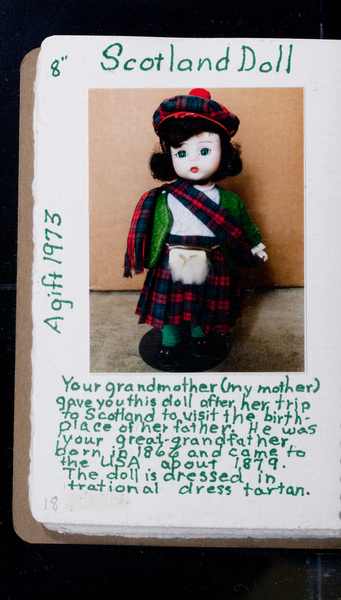 8" Scotland Doll
A gift 1973
Your grandmother (my mother)
gave you this doll after her trip
to Scotland to visit the birth-
place of her father. He was
your great-grandfather
born in 1866 and came to
the USA about 1879.
The doll is dressed in
trational dress tartan.
18